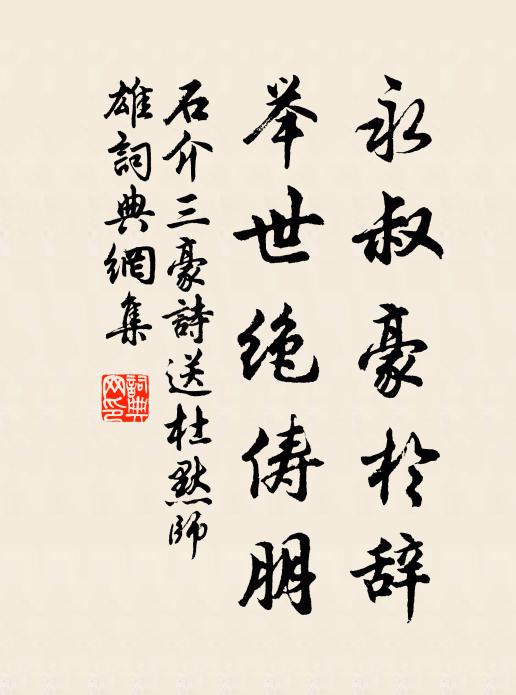 永叔豪於辞
举世绝俦朋
石介三豪詩送杜默師
雄詞典網集
詞典网印